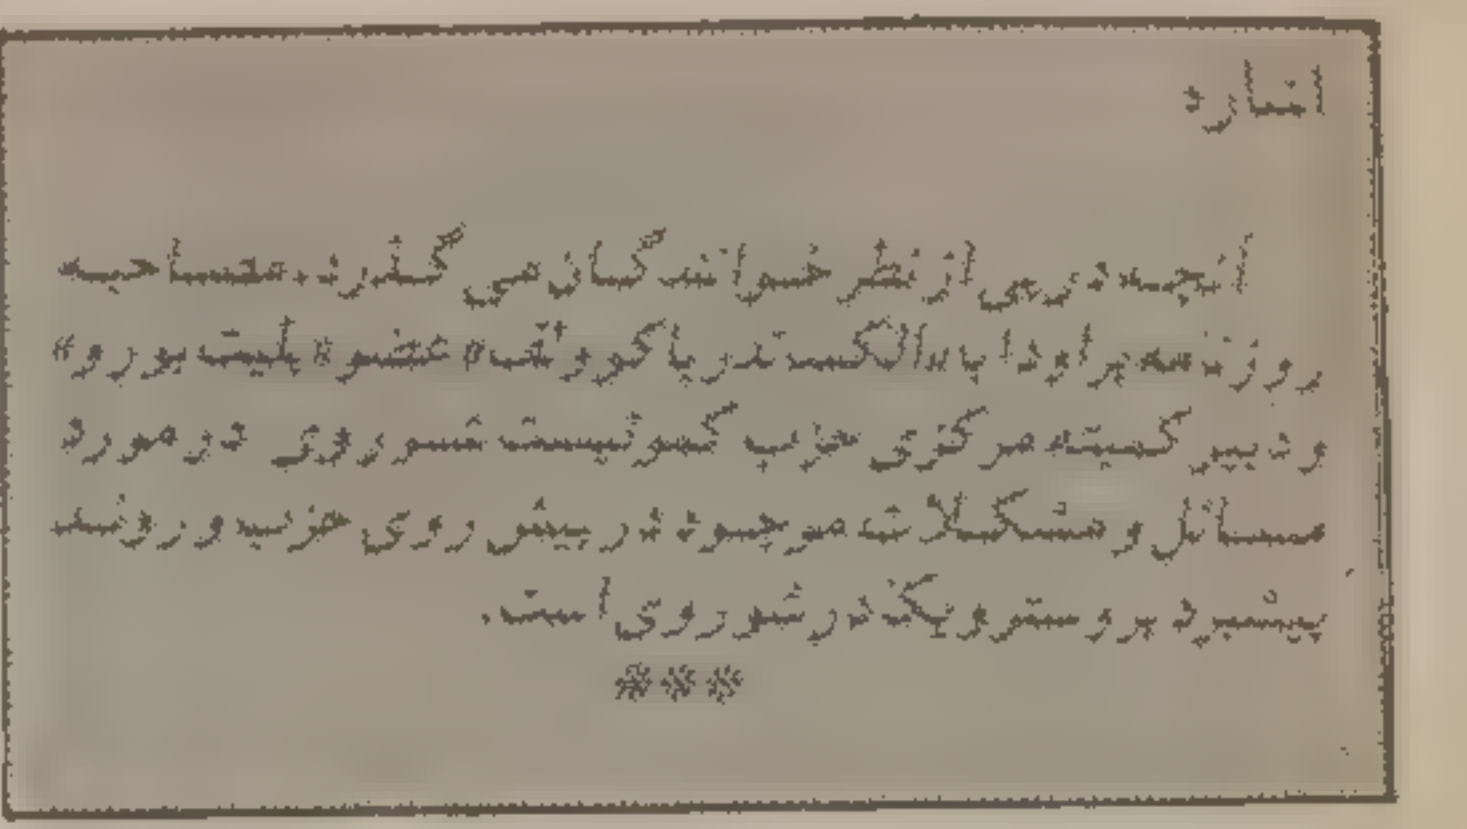 اشاره
آنچه در پی از نظر خوانندگان می گذرد، مصاحبه
روزنامه پراودا با «الکساندر یاکوولف» عضو «پلیت بورو»
و دبیر کمیته مرکزی حزب کمونیست شوروی در مورد
مسائل و مشکلات موجود در پیش روی حزب و روند
پیشبرد پروسترویکا در شوروی است.
***